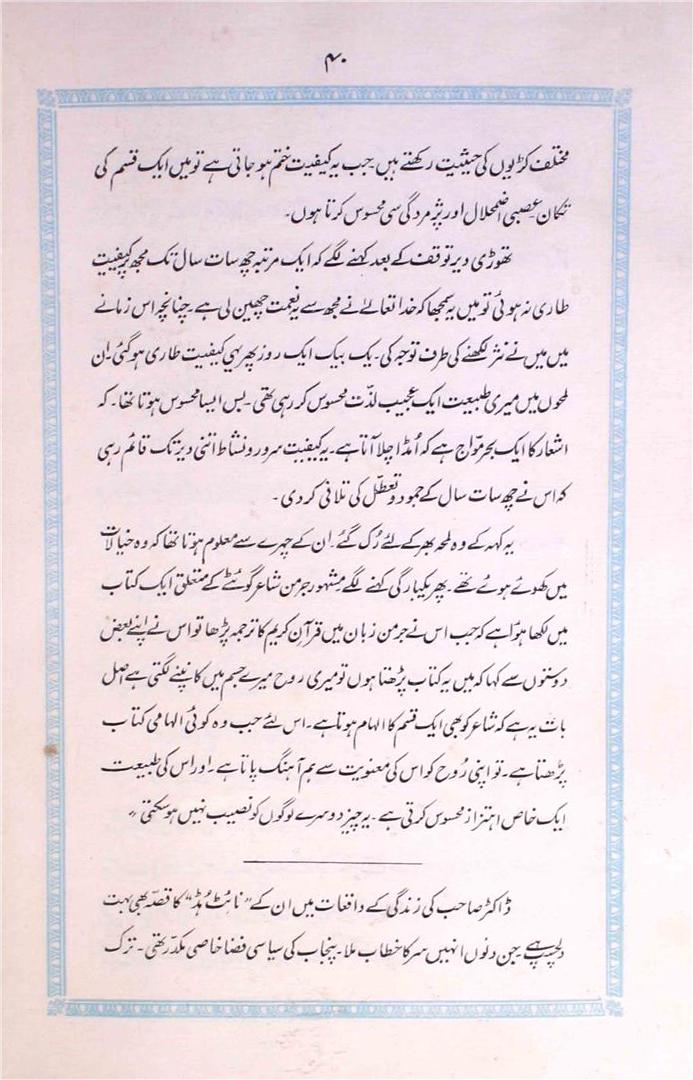 ۴۰
مختلف کڑیوں کی حیثیت رکھتے ہیں۔ جب یہ کیفیت ختم ہو جاتی ہے تو میں ایک قسم کی
تکان۔ عصبی اضمحلال اور پژمردگی سی محسوس کرتا ہوں۔
تھوڑی دیر توقف کے بعد کہنے لگے کہ ایک مرتبہ چھ سات سال تک مجھ پر کیفیت
طاری نہ ہوئی تو میں یہ سمجھا کہ خدا تعالےٰ نے مجھ سے یہ نعمت چھین لی ہے۔ چنانچہ اس زمانے
میں میں نے نثر لکھنے کی طرف توجہ کی۔ یک بیک ایک روز پھر یہی کیفیت طاری ہو گئی۔ ان
لمحوں میں میری طبیعت ایک عجیب لذّت محسوس کر رہی تھی۔ بس ایسا محسوس ہوتا تھا۔ کہ
اشعار کا ایک بحرِ موّاج ہے کہ اُمڈا چلا آتا ہے۔ یہ کیفیت سرور و نشاط اتنی دیر تک قائم رہی
کہ اس نے چھ سات سال کے جمود و تعطّل کی تلافی کر دی۔
یہ کہہ کے وہ لمحہ بھر کے لئے رُک گئے۔ ان کے چہرے سے معلوم ہوتا تھا کہ وہ خیالات
میں کھوئے ہوئے تھے۔ پھر یکبارگی کہنے لگے مشہور جرمن شاعر گوئٹے کے متعلق ایک کتاب
میں لکھا ہوا ہے کہ جب اس نے جرمن زبان میں قرآنِ کریم کا ترجمہ پڑھا تو اس نے اپنے بعض
دوستوں سے کہا کہ میں یہ کتاب پڑھتا ہوں تو میری روح میرے جسم میں کانپنے لگتی ہے اصل
بات یہ ہے کہ شاعر کو بھی ایک قسم کا الہام ہوتا ہے۔ اس لئے جب وہ کوئی الہامی کتاب
پڑھتا ہے۔ تو اپنی رُوح کو اس کی معنویت سے ہم آہنگ پاتا ہے۔ اور اس کی طبیعت
ایک خاص اہتزاز محسوس کرتی ہے۔ یہ چیز دوسرے لوگوں کو نصیب نہیں ہو سکتی"
ڈاکٹر صاحب کی زندگی کے واقعات میں ان کے "نائٹ ہُڈ" کا قصّہ بھی بہت
دلچسپ ہے۔ جن دنوں انہیں سر کا خطاب ملا۔ پنجاب کی سیاسی فضا خاصی مکدّر تھی۔ ترک